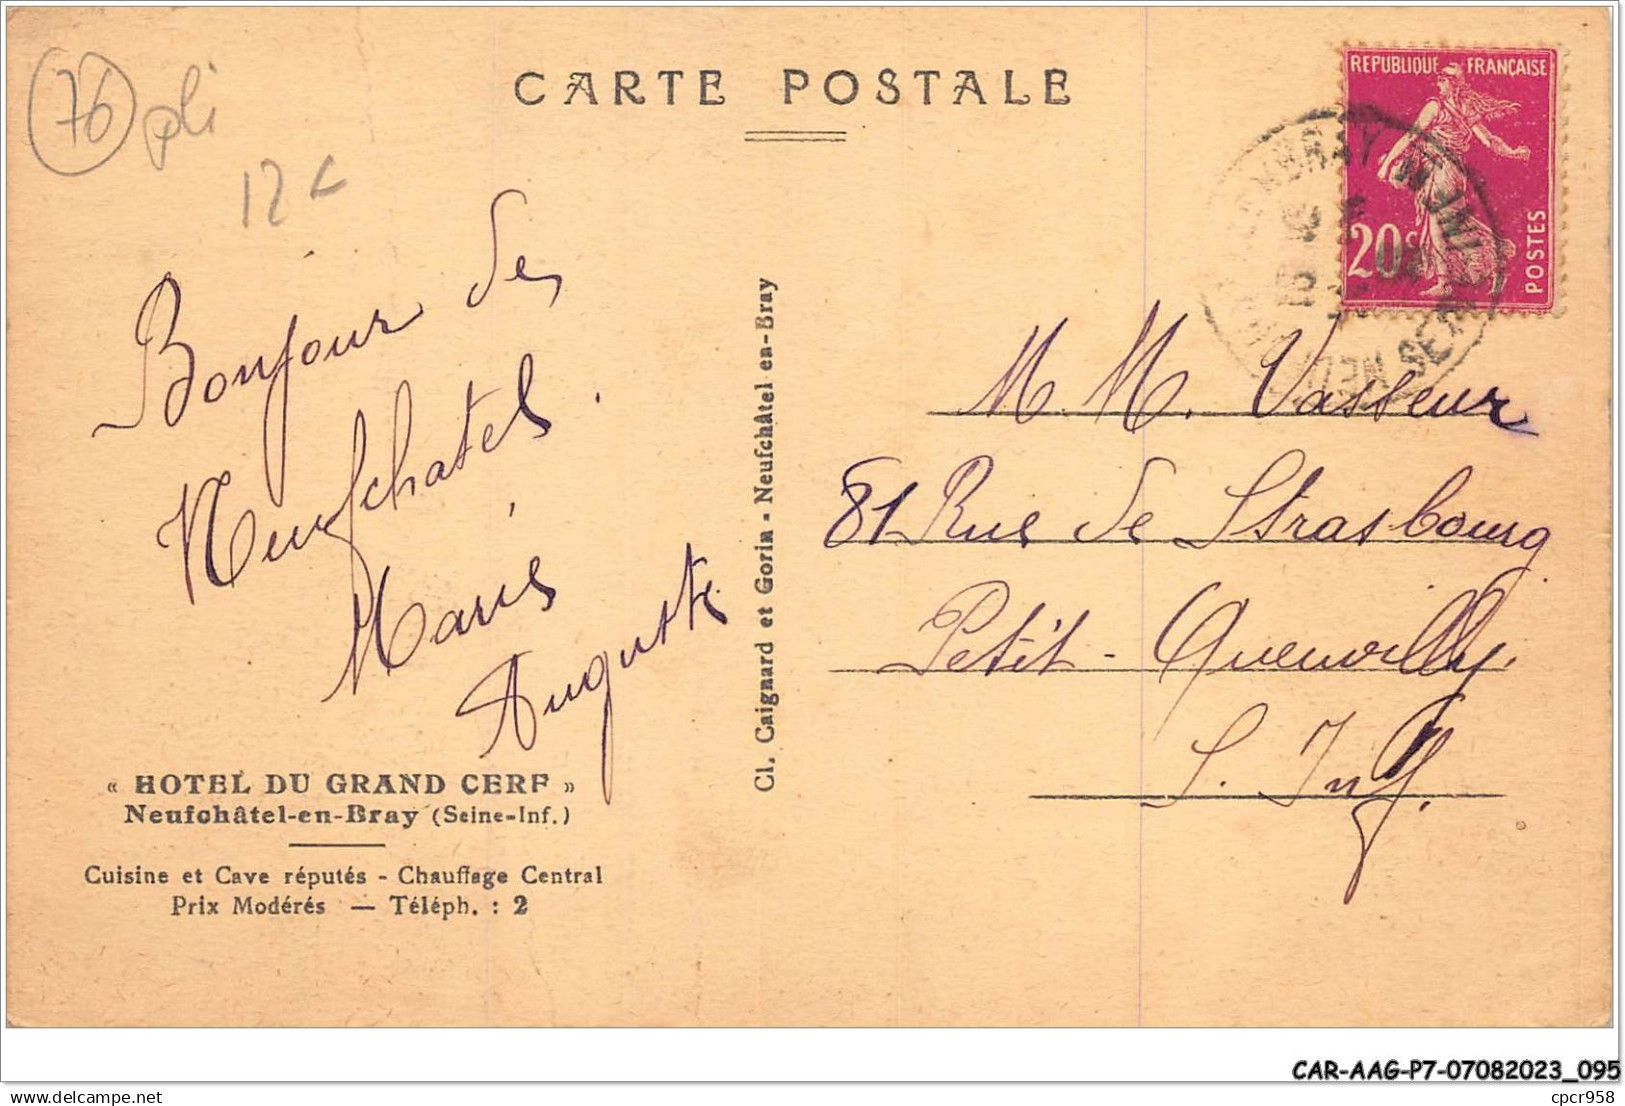 76
pli
12 €
CARTE POSTALE
REPUBLIQUE FRANÇAISE
20c
POSTES
Bonjour de
Neufchatel.
Marie
Auguste
Cl. Caignard et Gorin - Neufchâtel en-Bray
M. M. Vasseur
81 Rue de Strasbourg
Petit-Quevilly.
S. Inf.
« HOTEL DU GRAND CERF »
Neufchâtel-en-Bray (Seine-Inf.)
Cuisine et Cave réputés - Chauffage Central
Prix Modérés — Téléph. : 2
CAR-AAG-P7-07082023_095
cpcr958